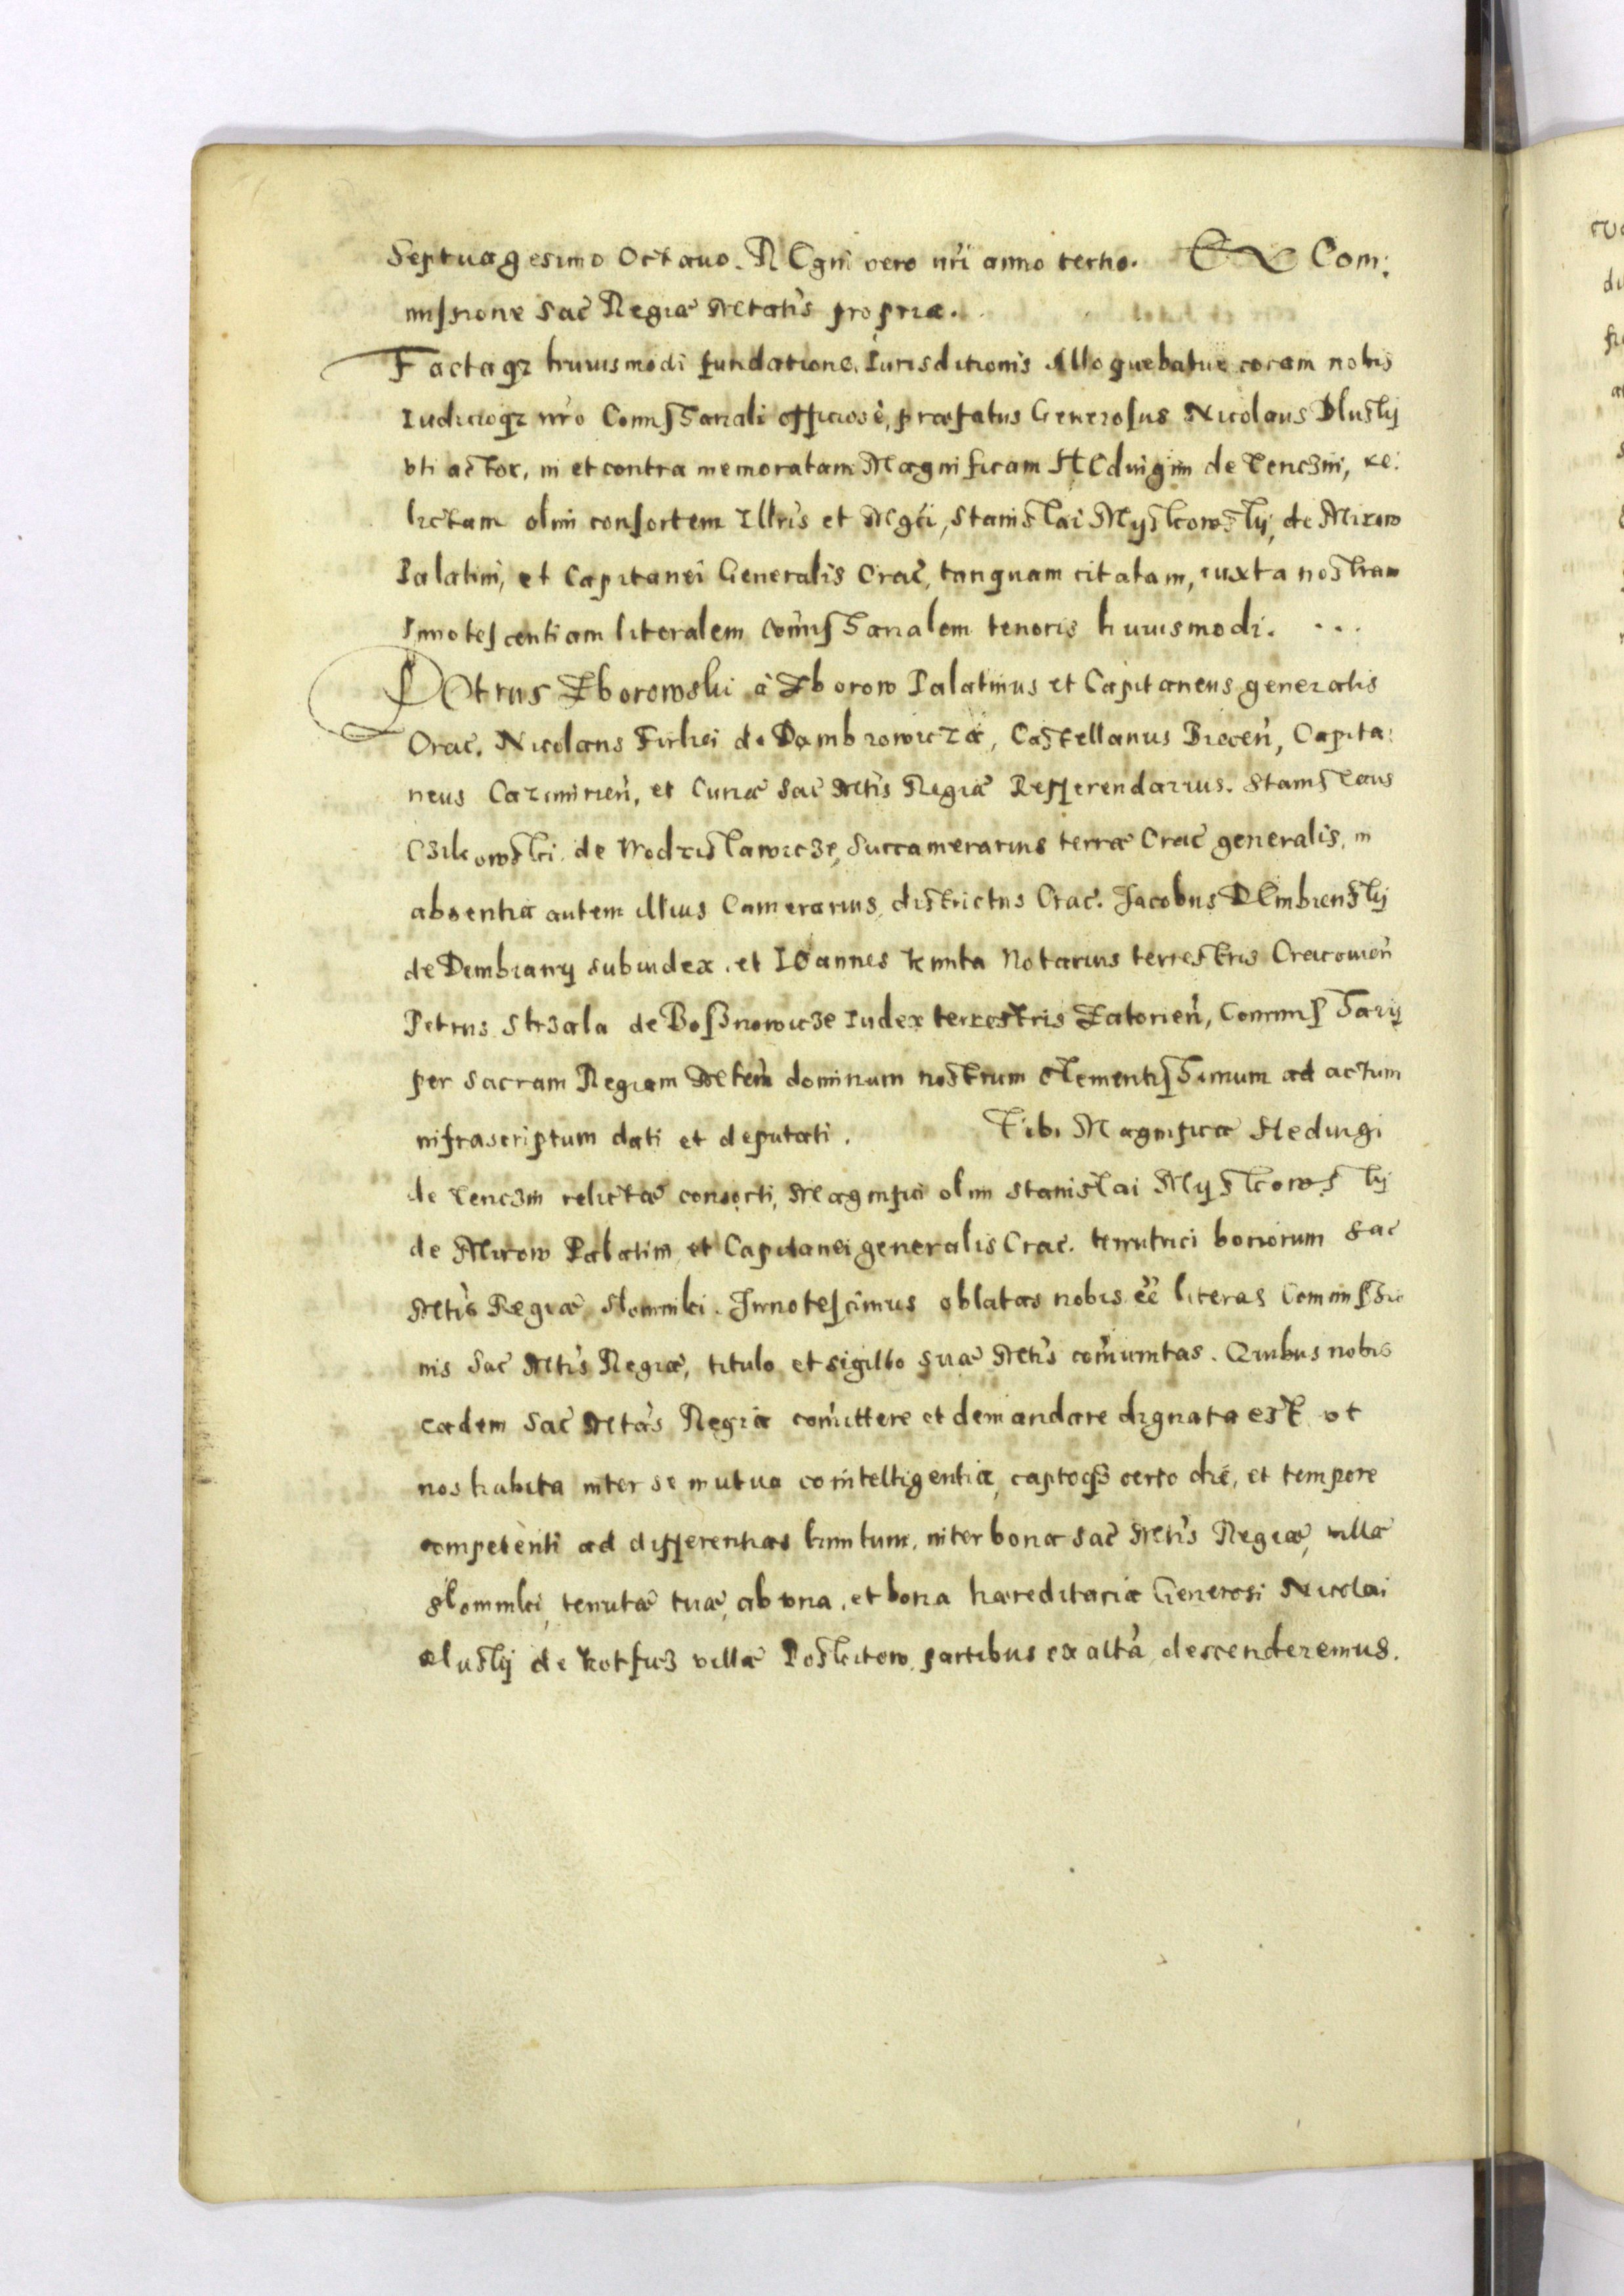 Septuagesimo Octauo. REgni vero nri anno tertio. Ex Com:
missione Sac Regiæ Mtatis propria.
Factaqz huiusmodi fundatione Iurisditionis Alloquebatur coram nobis
Iudicioqz nro Comissariali officiose, præfatus Generosus Nicolaus Dlusky
vti actor, in et contra memoratam Magnificam HEduigim de Tenczin, re:
lictam olim consortem Illris et Mgci, Stanislai Myskowsky, de Mirow
Palatini, et Capitanei Generalis Crac, tanquam citatam, iuxta nostram
Innotescentiam literalem Comissarialem tenoris huiusmodi. ...
PEtrus Zborowski à Zborow Palatinus et Capitaneus generalis
Crac. Nicolaus Firlei de Dambrowicza, Castellanus Biecen, Capita:
neus Cazimirien, et Curiæ Sac Mtis Regiæ Refferendarius. Stanislaus
Czikowski de Wodzislawicze, Succamerarius terræ Crac generalis, in
absentia autem illius Camerarius districtus Crac. Jacobus DEmbiensky
de Dembiany subiudex, et IOannes Kmita Notarius terrestris Cracouien
Petrus Strzala de Bossnowicze Iudex terrestris Zatorien, Commissarij
per Sacram Regiam Mtem dominum nostrum clementissimum ad actum
infrascriptum dati et deputati. Tibi Magnificæ Heduigi
de Tenczin relictæ consorti, Magnifici olim Stanislai Myskowsky
de Mirow Palatini et Capitanei generalis Crac. tenutrici bonorum Sac
Mtis Regiæ Slomniki. Innotescimus oblatas nobis ee literas Commissio
nis Sac Mtis Regiæ, titulo et sigillo suæ Mtis comunitas. Quibus nobis
eadem Sac Mtas Regia comittere et demandare dignata est vt
nos habita inter se mutua cointelligentia, captoqz certo die, et tempore
competenti ad differentias limitum, inter bona Sac Mtis Regiæ, villæ
Slomniki, tenutæ tuæ, ab vna, et bona hæreditaria Generosi Nicolai
Dlusky de Kotficz villæ Poskitow partibus ex altà descenderemus.